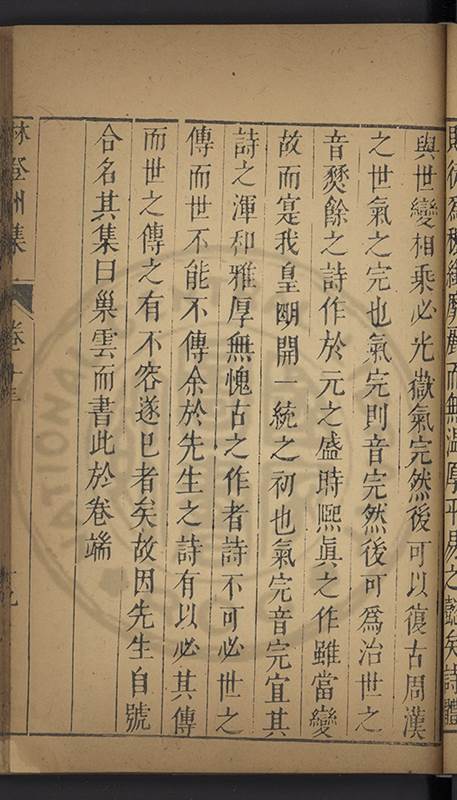 而無溫厚平易之懿矣詩體
與世變相乘必光嶽氣完然後可以復古周漢
之世氣之完也氣完則音完然後可爲治世之
音爕餘之詩作於元之盛時熈眞之作雖當變
故而寔我皇朙開一統之初也氣完音完宜其
詩之渾和雅厚無愧古之作者詩不可必世之
傳而世不能不傳余於先生之詩有以必其傳
而世之傳之有不容遂巳者矣故因先生自號
合名其集曰巢雲而書此於卷端
林登州集
卷十